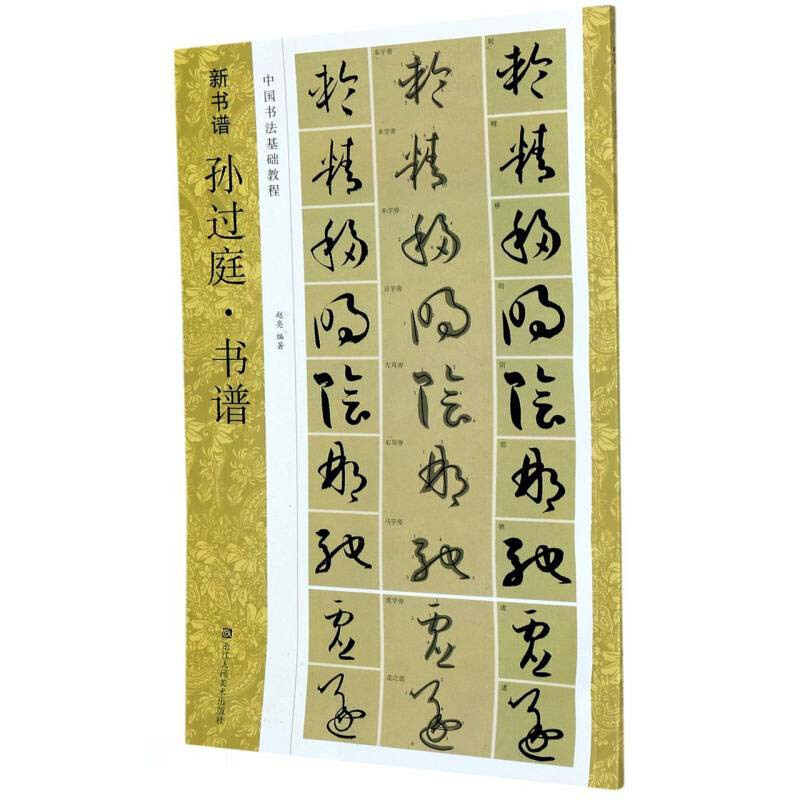 新书谱
孙过庭·书谱
浙江人民美术出版社
中国书法基础教程
赵亮 编著
车字旁
轮
米字旁
精
禾字旁
移
日字旁
明
左耳旁
阴
右耳旁
马字旁
驰
虎字旁
虚
走之底